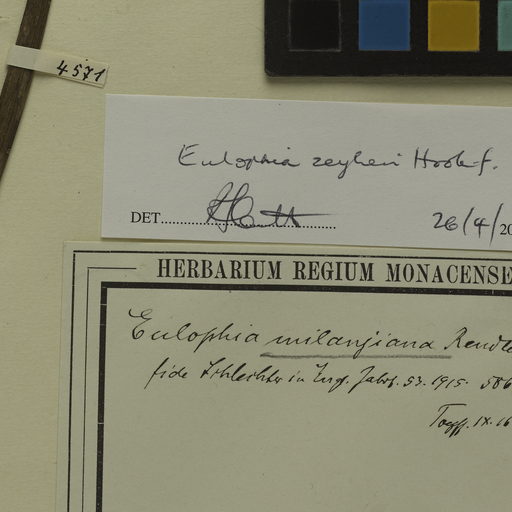 4571
Eulophia zeyheri Hook-f.
DET.
26/4/20
HERBARIUM REGIUM MONACENSE
Eulophia milanjiana Rendle
fide Schlechter in Engl. Jahrb. 53. 1915. 586
IX. 16